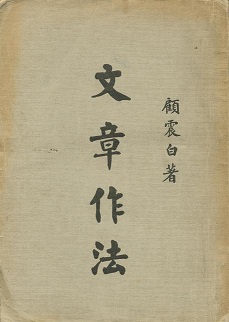 顧震白著
文章作法